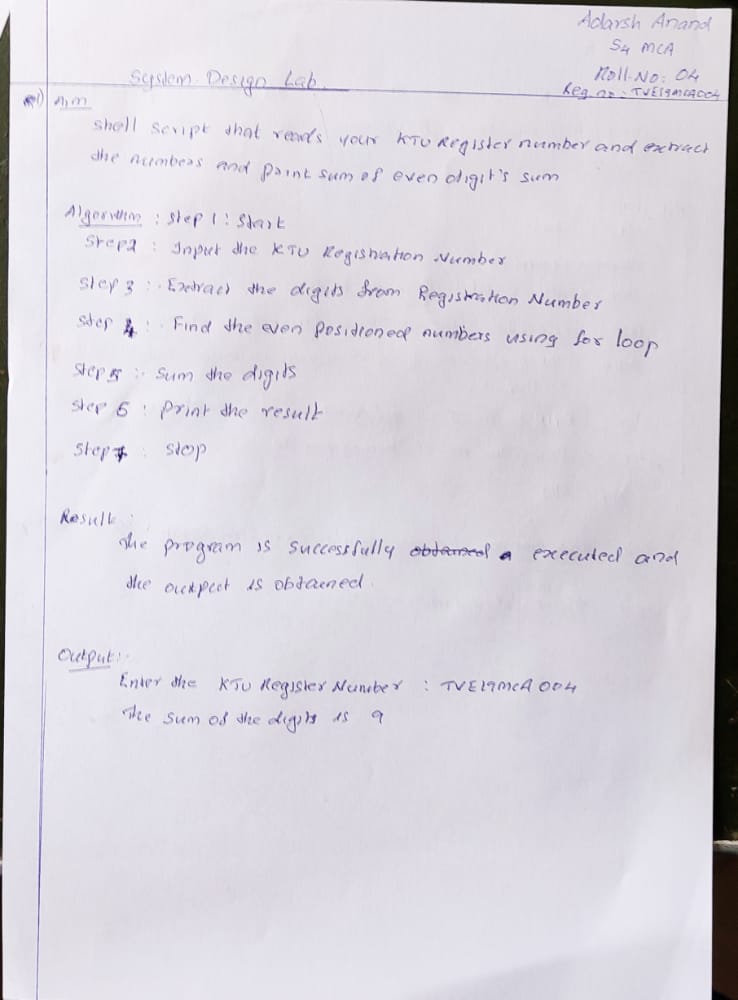 Adarsh Anand
S4 MCA
Roll.No: 04
Reg.no: TVE19MCA004
System Design Lab
1) Aim
Shell script that reads your KTU Register number and extract
the numbers and print sum of even digit's sum
Algorithm : Step 1 : Start
Step 2 : Input the KTU Registration Number
Step 3 :- Extract the digits from Registration Number
Step 4 :- Find the even positioned numbers using for loop
Step 5 :- Sum the digits
Step 6 : Print the result
Step 7 : Stop
Result :
The program is successfully obtained a executed and
the output is obtained.
Output :-
Enter the KTU Register Number : TVE19MCA004
The sum of the digits is 9